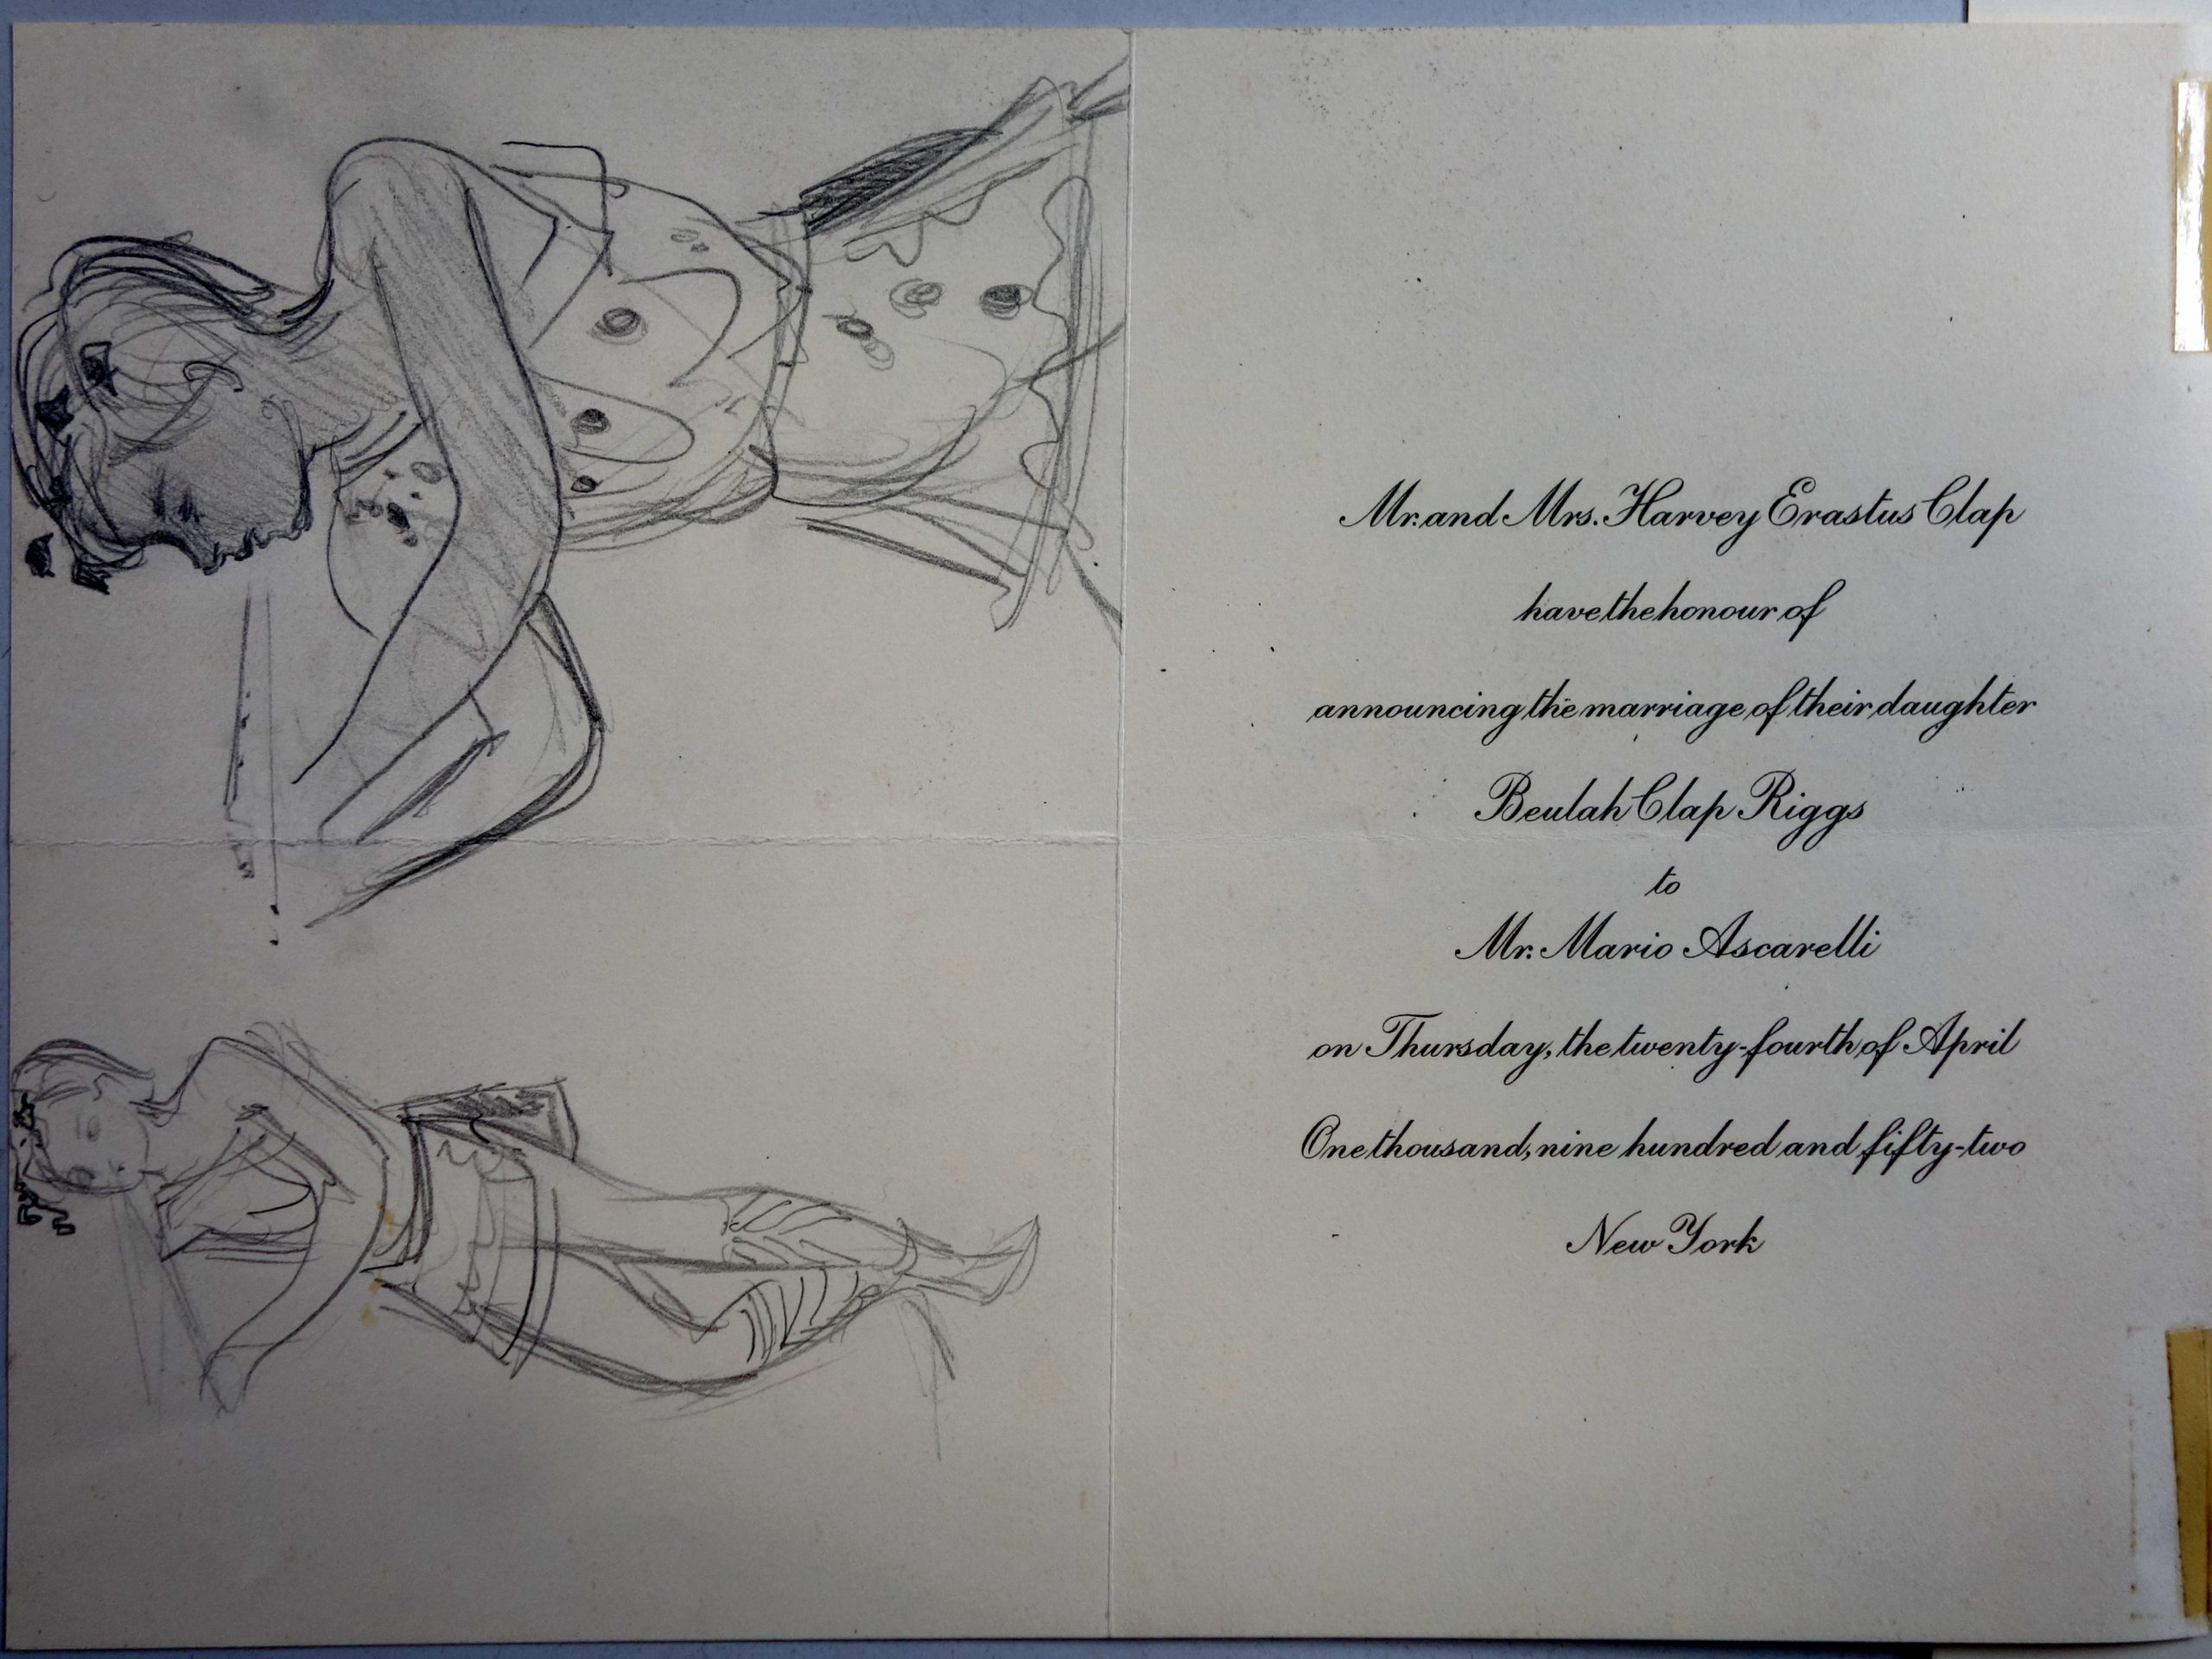 Mr. and Mrs. Harvey Erastus Clap
have the honour of
announcing the marriage of their daughter
Beulah Clap Riggs
to
Mr. Mario Ascarelli
on Thursday, the twenty-fourth of April
One thousand, nine hundred and fifty-two
New York